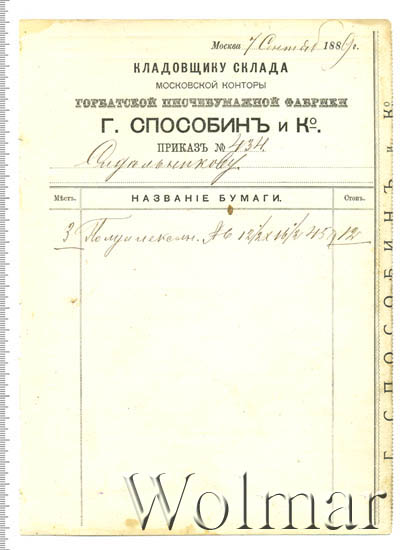 Москва 7 Сентяб 1889 г.
КЛАДОВЩИКУ СКЛАДА
МОСКОВСКОЙ КОНТОРЫ
ГОРБАТСКОЙ ПИСЧЕБУМАЖНОЙ ФАБРИКИ
Г. СПОСОБИНЪ и Ко.
ПРИКАЗЪ № 434.
Мѣстъ. НАЗВАНІЕ БУМАГИ. Стопъ.
3 № 6 12½ х 16½ 12
Г. СПОСОБИНЪ и Ко
Wolmar